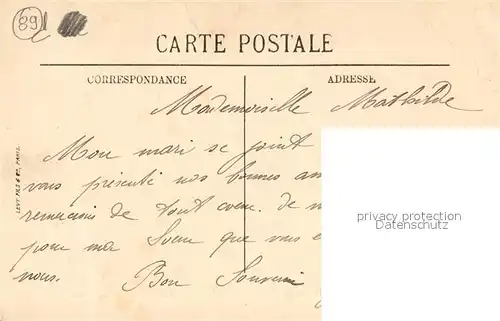 89
CARTE POSTALE
CORRESPONDANCE
ADRESSE
Mademoiselle Mathilde
Mon mari se joint
vous présenté nos bonnes am
remercions de tout coeur. de
pour ma Soeur que vous
nous. Bon Souvenir
LEVY FILS & Cie, PARIS.
privacy protection
Datenschutz